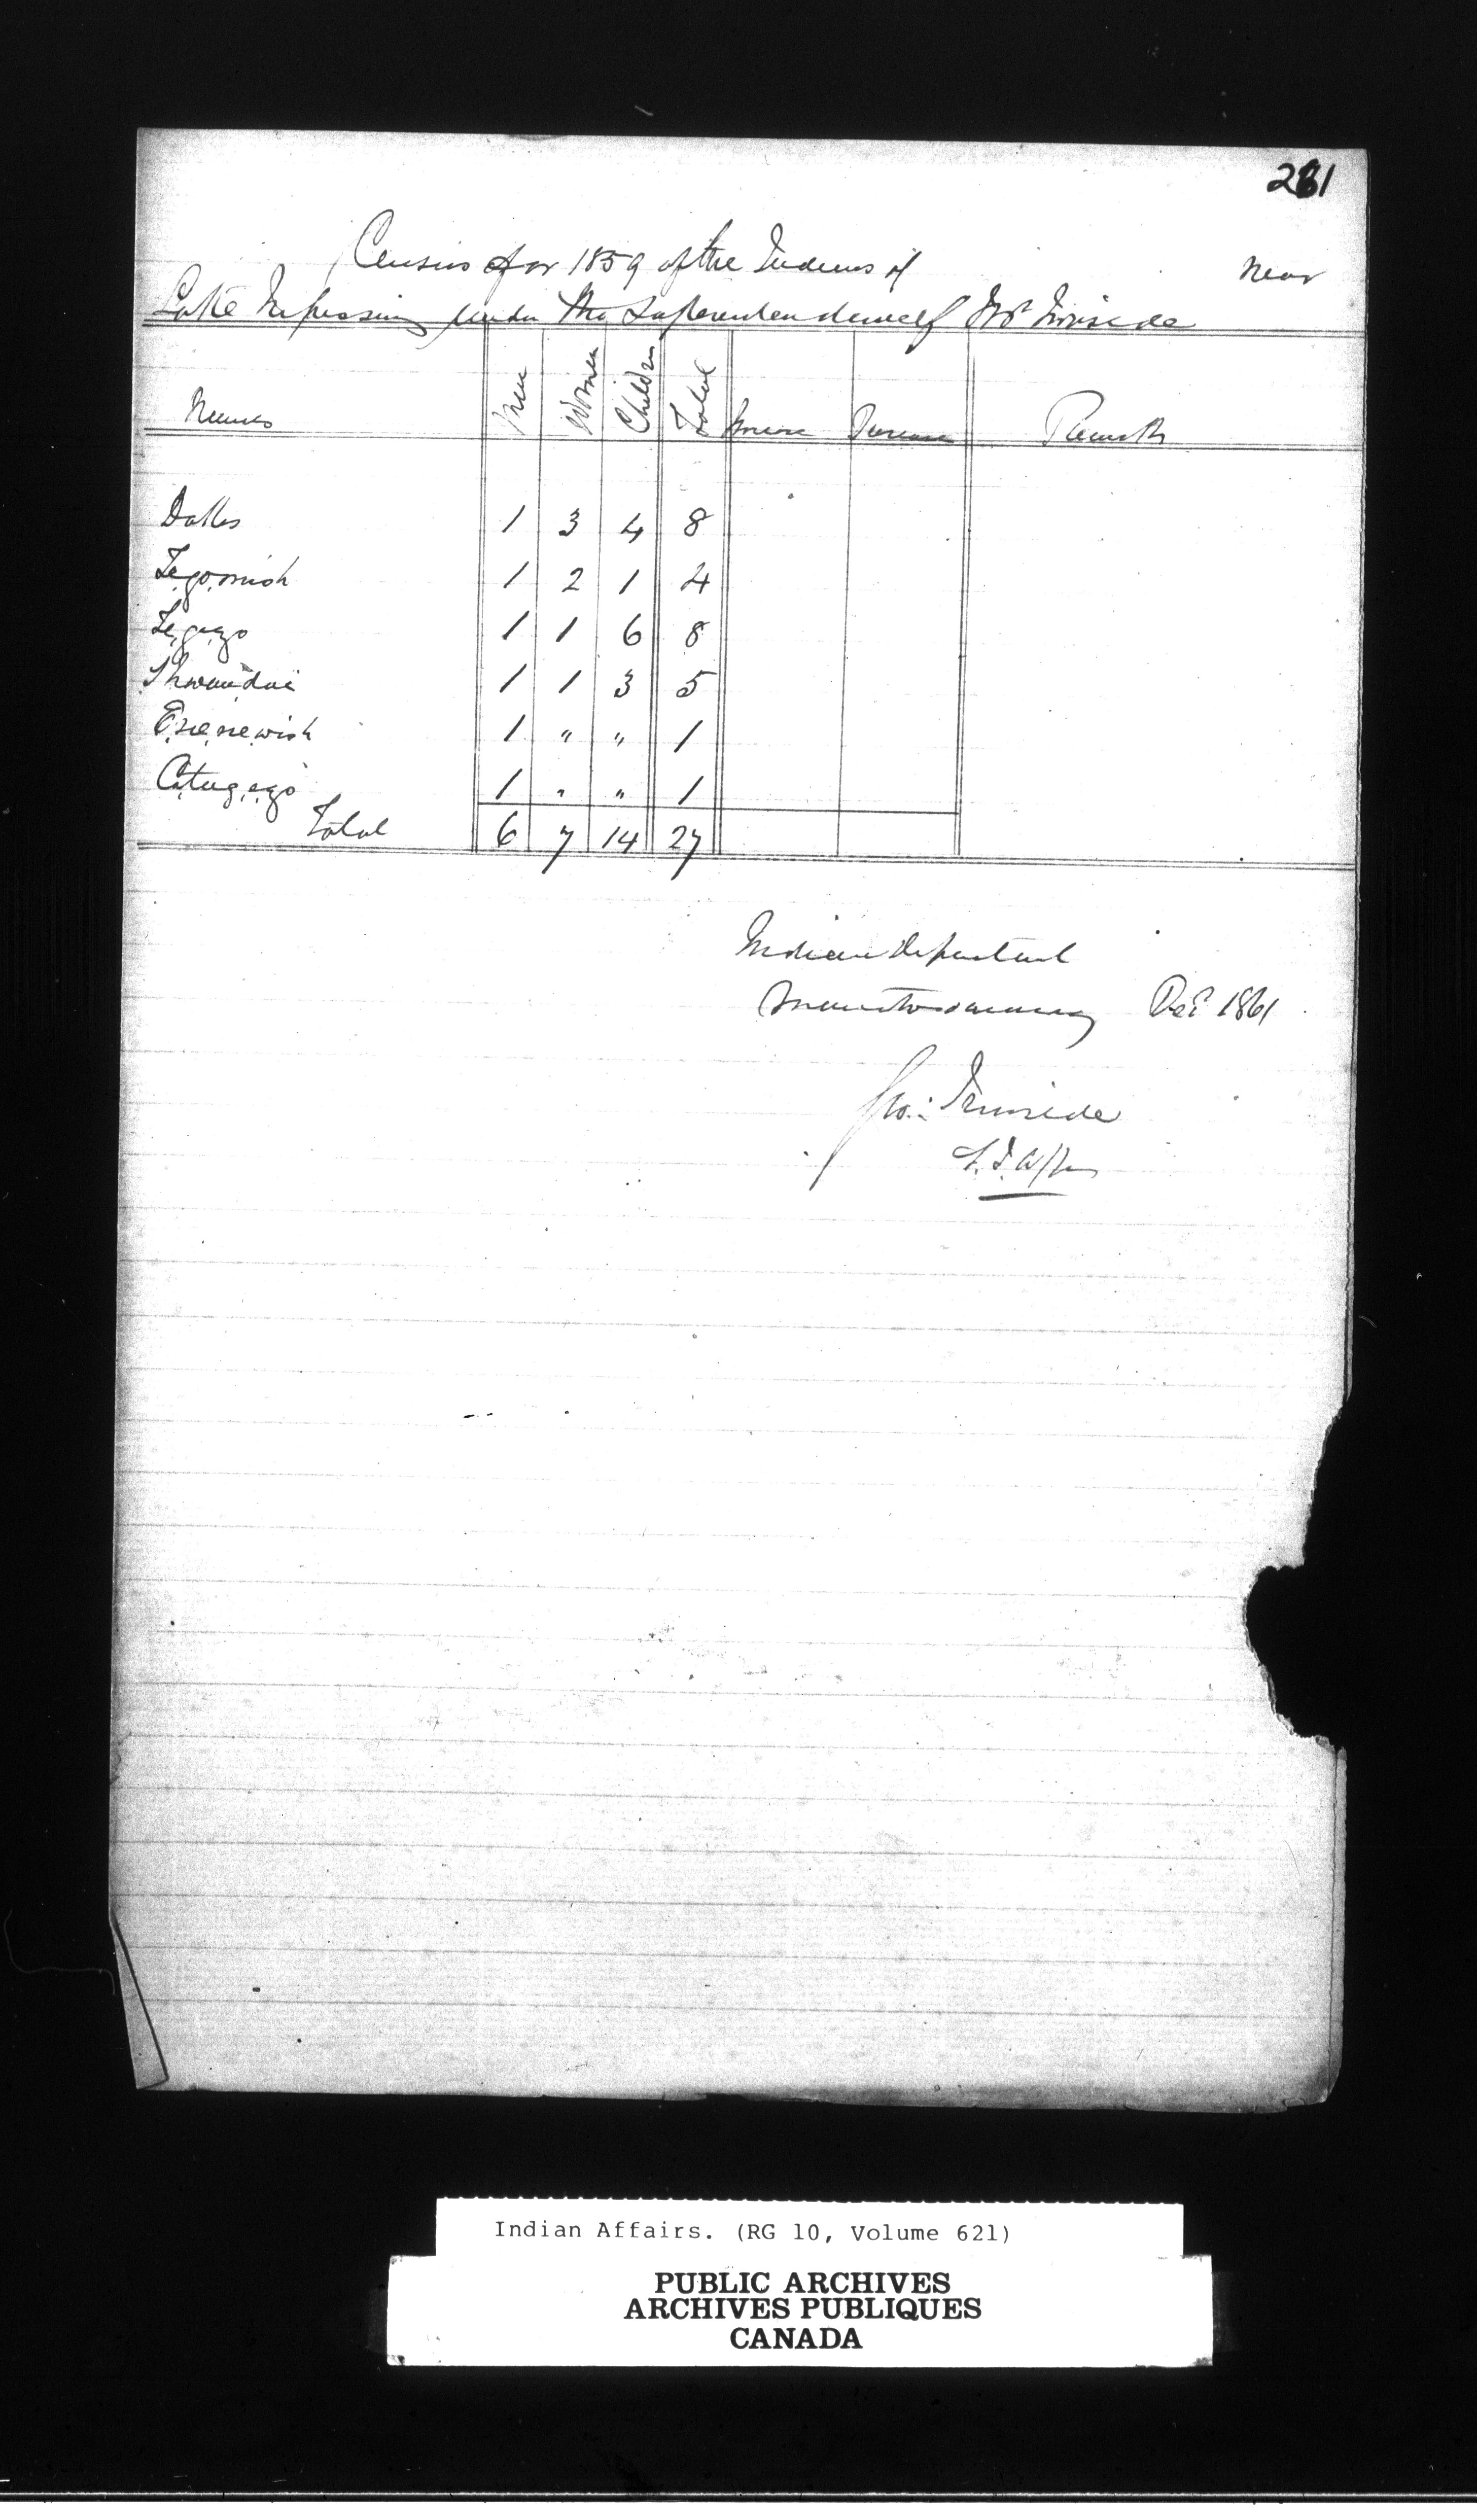 281
Census for 1859 of the Indians of near
Lake Nipissing under the Superintendency of Mr Ironside
Names Men Women Children Total Increase Decrease Remarks
Dokes 1 3 4 8
Te,go,mish 1 2 1 4
1 1 6 8
1 1 3 5
1 " " 1
1 " " 1
Total 6 7 14 27
Indian Department
Manitowaning Decr 1861
Geo: Ironside
Indian Affairs. (RG 10, Volume 621)
PUBLIC ARCHIVES
ARCHIVES PUBLIQUES
CANADA